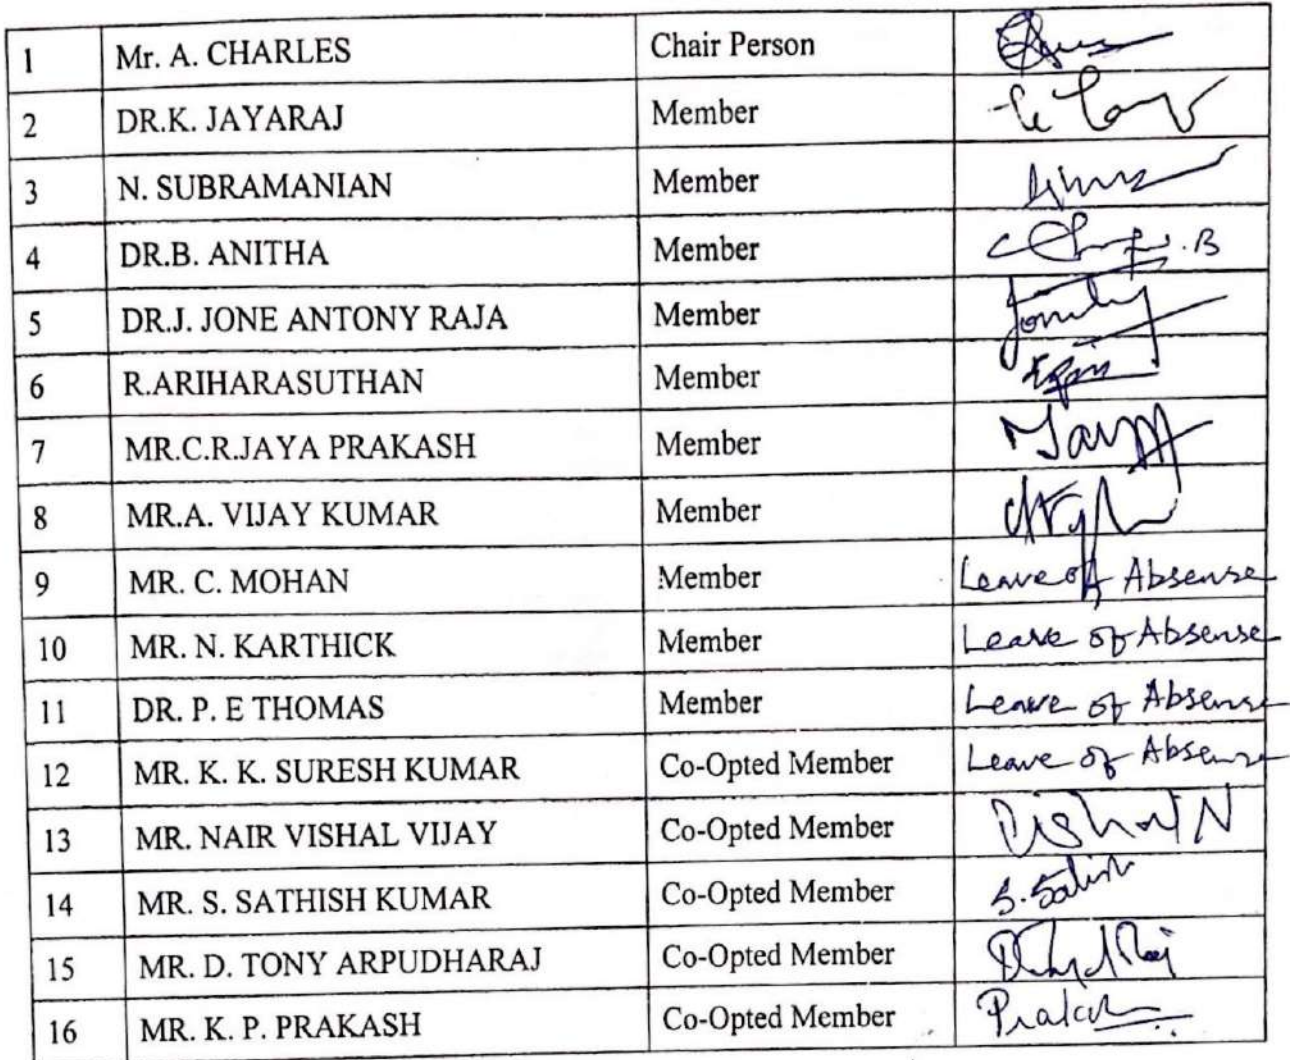 1 Mr. A. CHARLES Chair Person
2 DR.K. JAYARAJ Member
3 N. SUBRAMANIAN Member
4 DR.B. ANITHA Member
5 DR.J. JONE ANTONY RAJA Member
6 R.ARIHARASUTHAN Member
7 MR.C.R.JAYA PRAKASH Member
8 MR.A. VIJAY KUMAR Member
9 MR. C. MOHAN Member Leave of Absense
10 MR. N. KARTHICK Member Leave of Absense
11 DR. P. E THOMAS Member Leave of Absense
12 MR. K. K. SURESH KUMAR Co-Opted Member Leave of Absense
13 MR. NAIR VISHAL VIJAY Co-Opted Member Vishal N
14 MR. S. SATHISH KUMAR Co-Opted Member S. Satish
15 MR. D. TONY ARPUDHARAJ Co-Opted Member
16 MR. K. P. PRAKASH Co-Opted Member Prakash